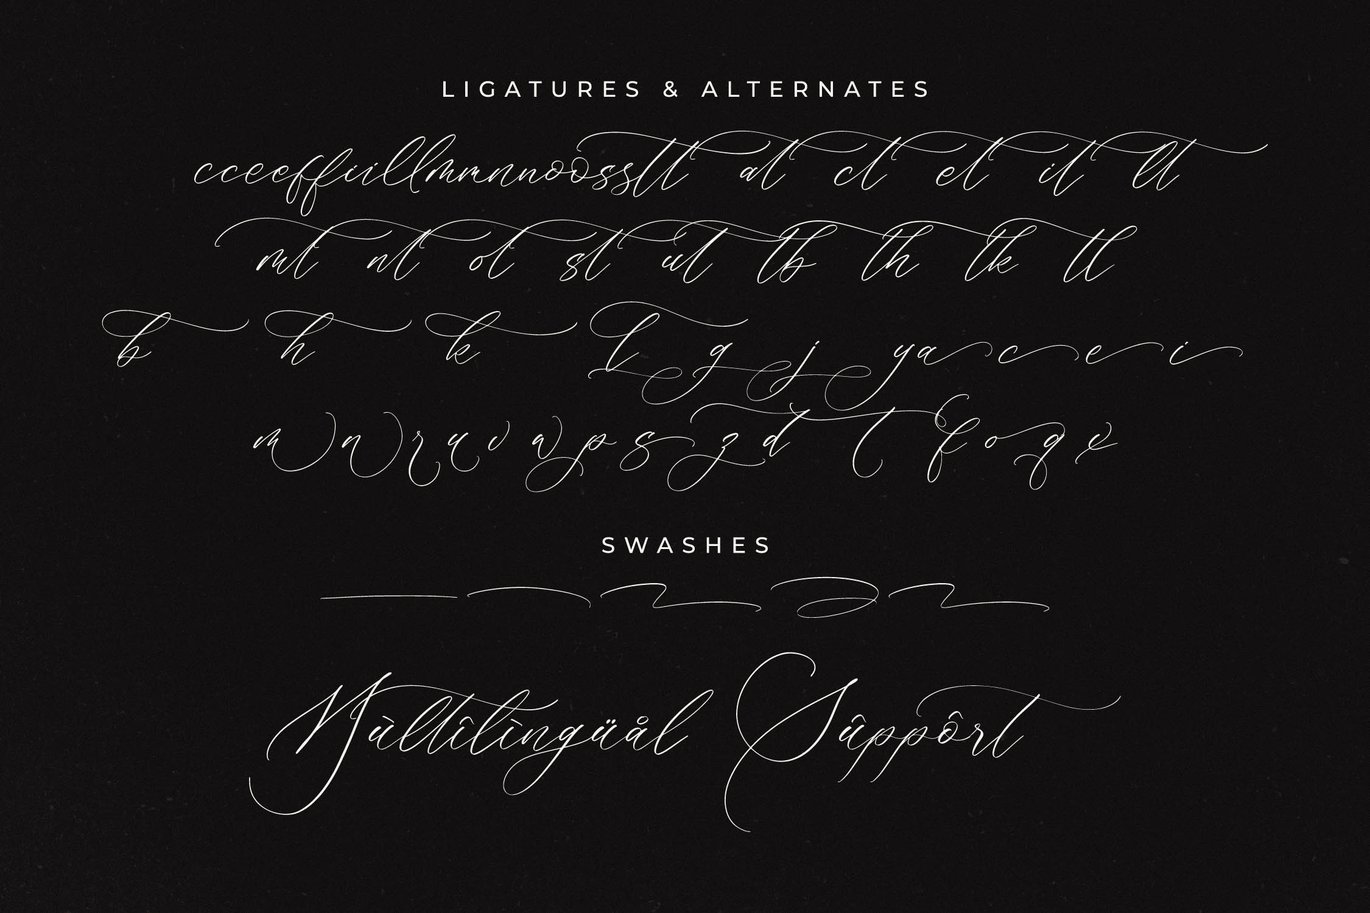 LIGATURES & ALTERNATES
cceeffiillmmnnoossttt at ct et it lt
mt nt ot st ut tb th tk tl
b h k l g j y a c e i
m n r u v w p s z d t f o q x
SWASHES
Mùltîlìngüål Sûppôrt